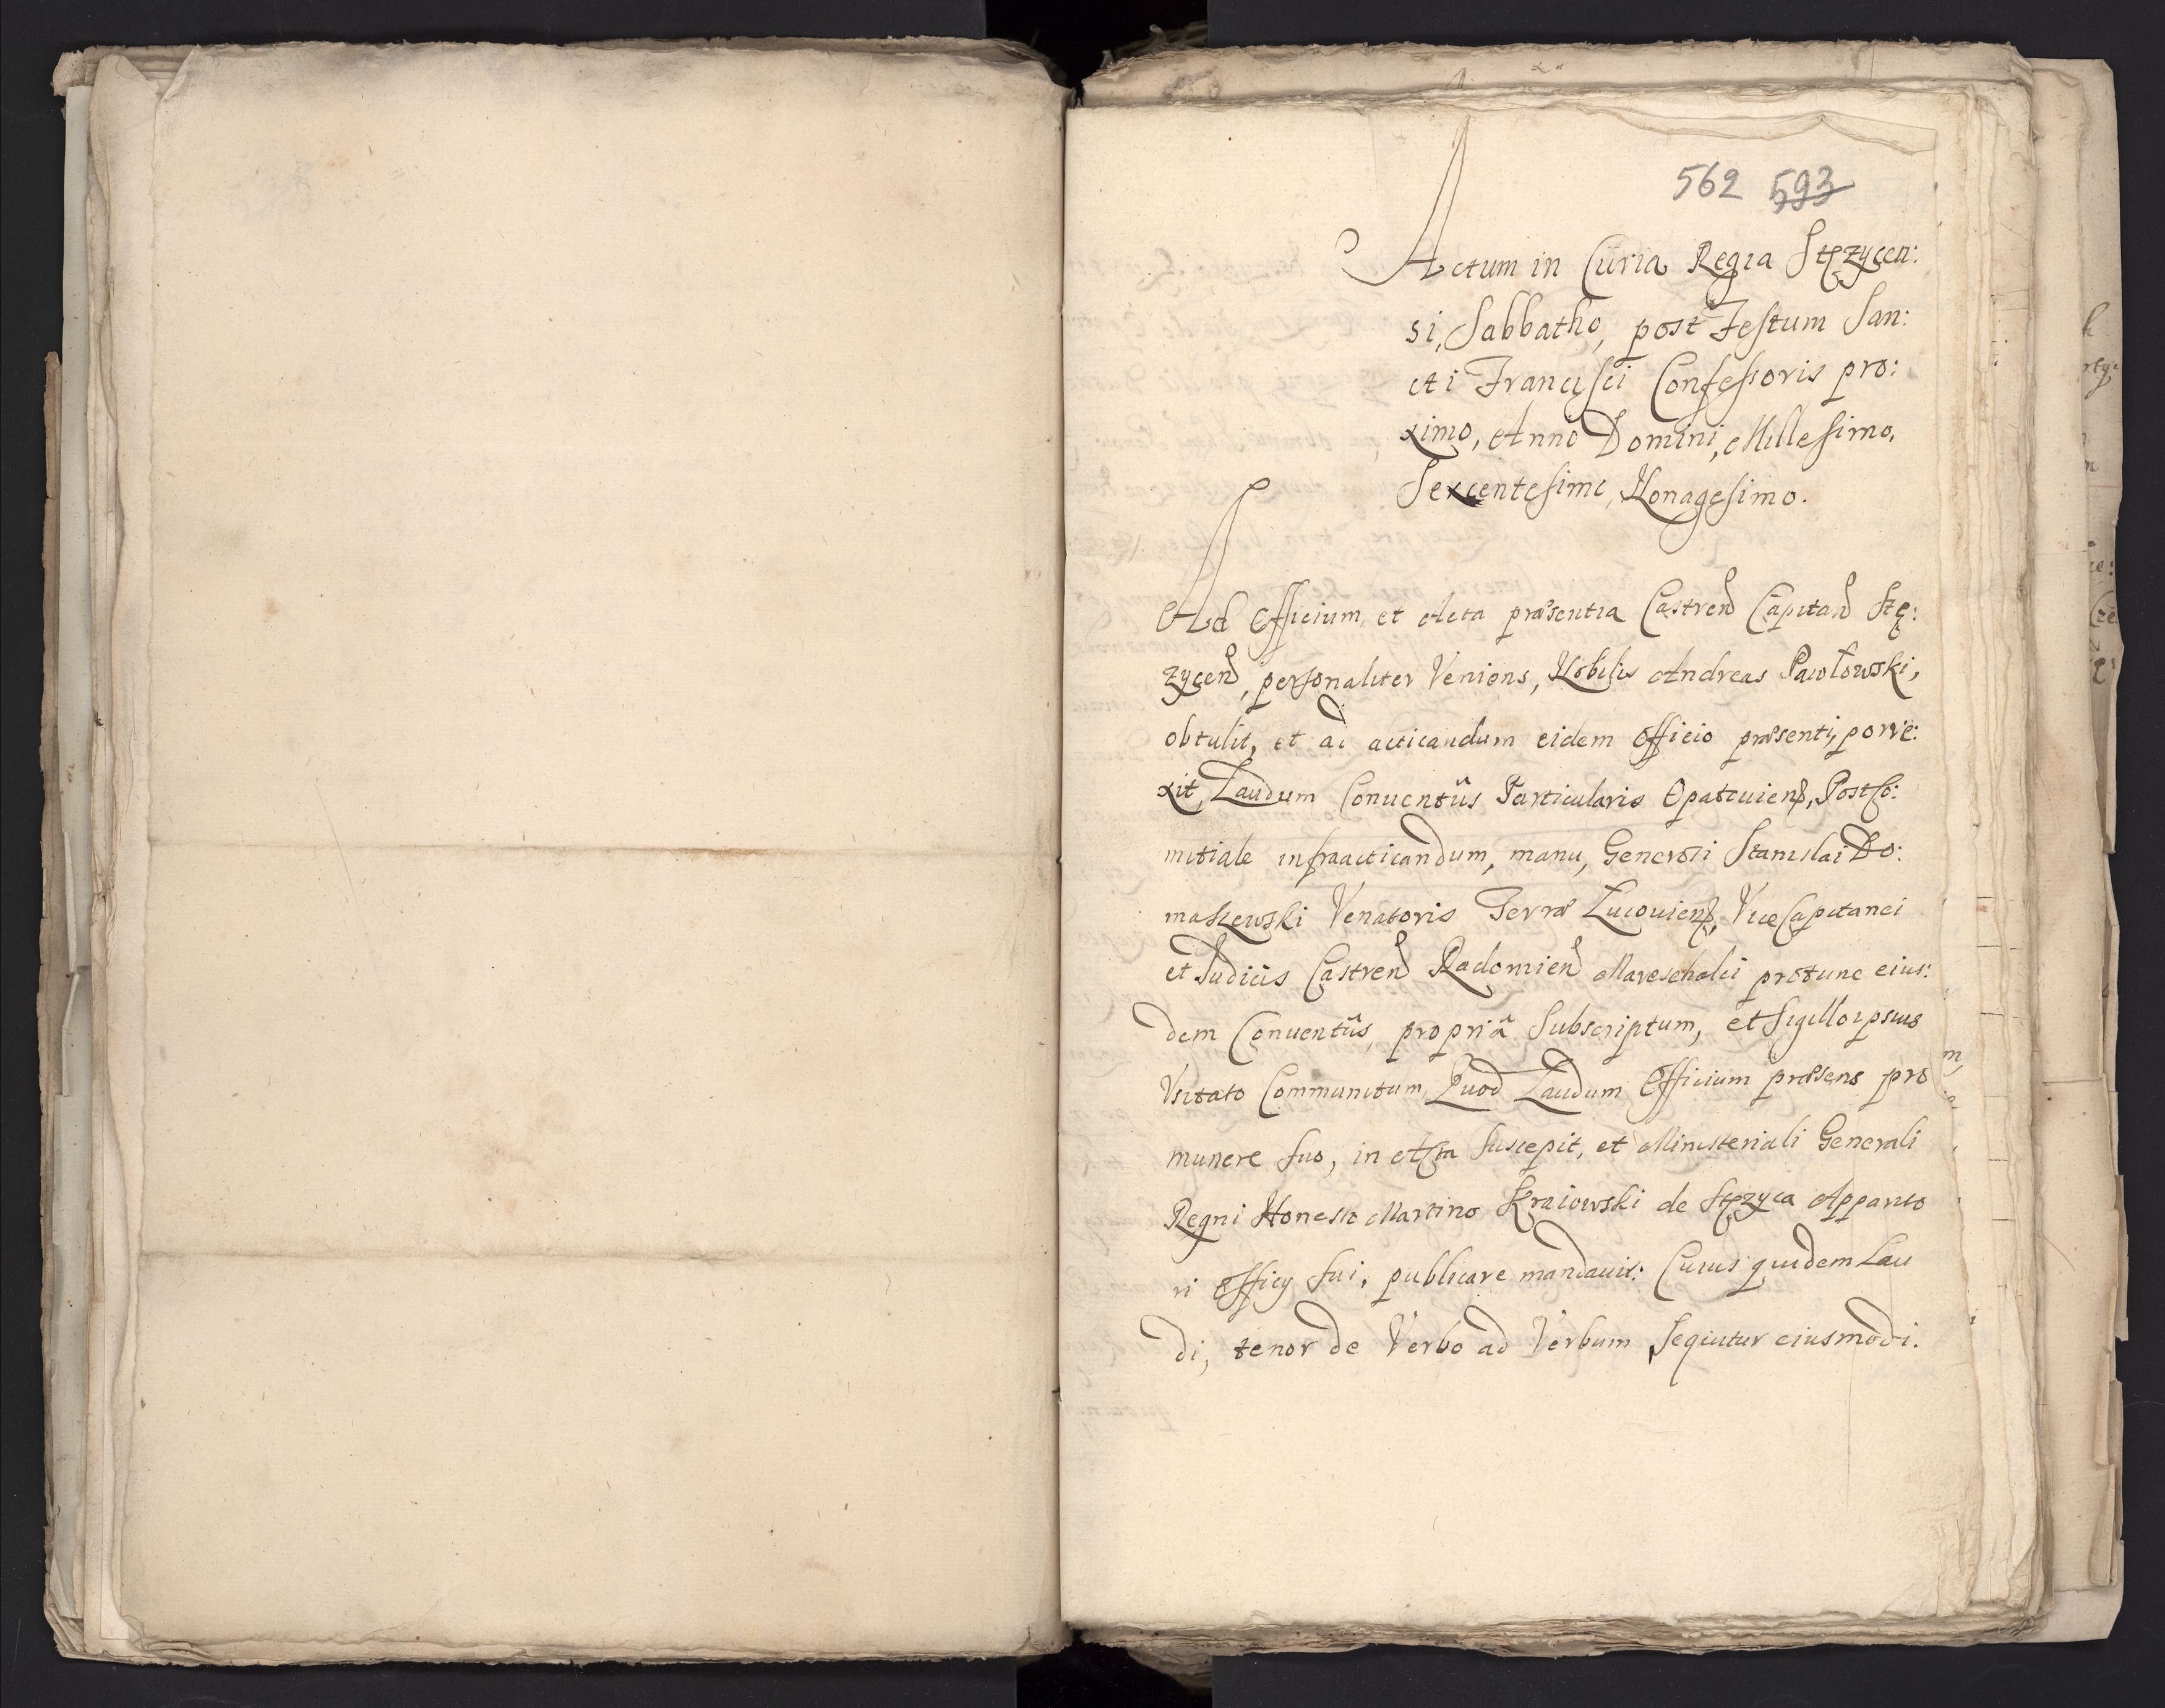 562 593
Actum in Curia Regia Stęzycen:
si, Sabbatho, post Festum San:
cti Francisci Confessoris pro:
ximo, Anno Domini, Millesimo,
Sexcentesimo, Nonagesimo.
Ad Officium, et Acta præsentia Castren Capitan Stę:
zycen, personaliter Veniens, Nobilis Andreas Pawłowski,
obtulit, et ad acticandum eidem Officio præsenti, porre:
xit, Laudum Conventûs Particularis Opatoviens, PostCo:
mitiale infraacticandum, manu, Generosi Stanislai Do:
maszewski Venatoris Terræ Lucoviens, ViceCapitanei
et Judicis Castren Radomien Mareschalci protunc eius:
dem Conventûs, propriâ Subscriptum, et Sigillo ipsius
Usitato Communitum, Quod Laudum Officium præsens pro
munere suo, in Acta suscepit, et Ministeriali Generali
Regni Honesto Martino Kraiowski de Stęzyca Apparito
ri Officy sui, publicare mandavit: Cuius quidem Lau
di, tenor de Verbo ad Verbum, Sequitur eiusmodi.